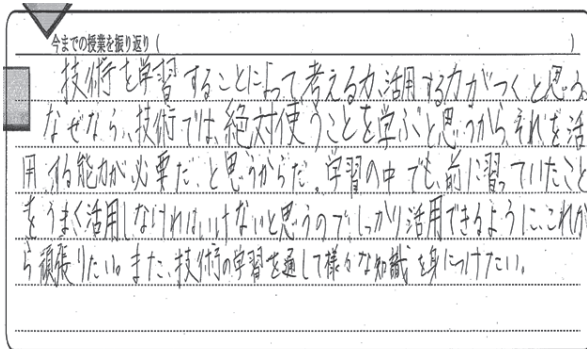 今までの授業を振り返り( )
技術を学習することによって考える力、活用する力がつくと思う。
なぜなら、技術では、絶対使うことを学ぶと思うから、それを活
用する能力が必要だ、と思うからだ。学習の中でも、前に習っていたこと
をうまく活用しなければいけないと思うので、しっかり活用できるように、これか
ら頑張りたい。また、技術の学習を通して様々な知識を身につけたい。